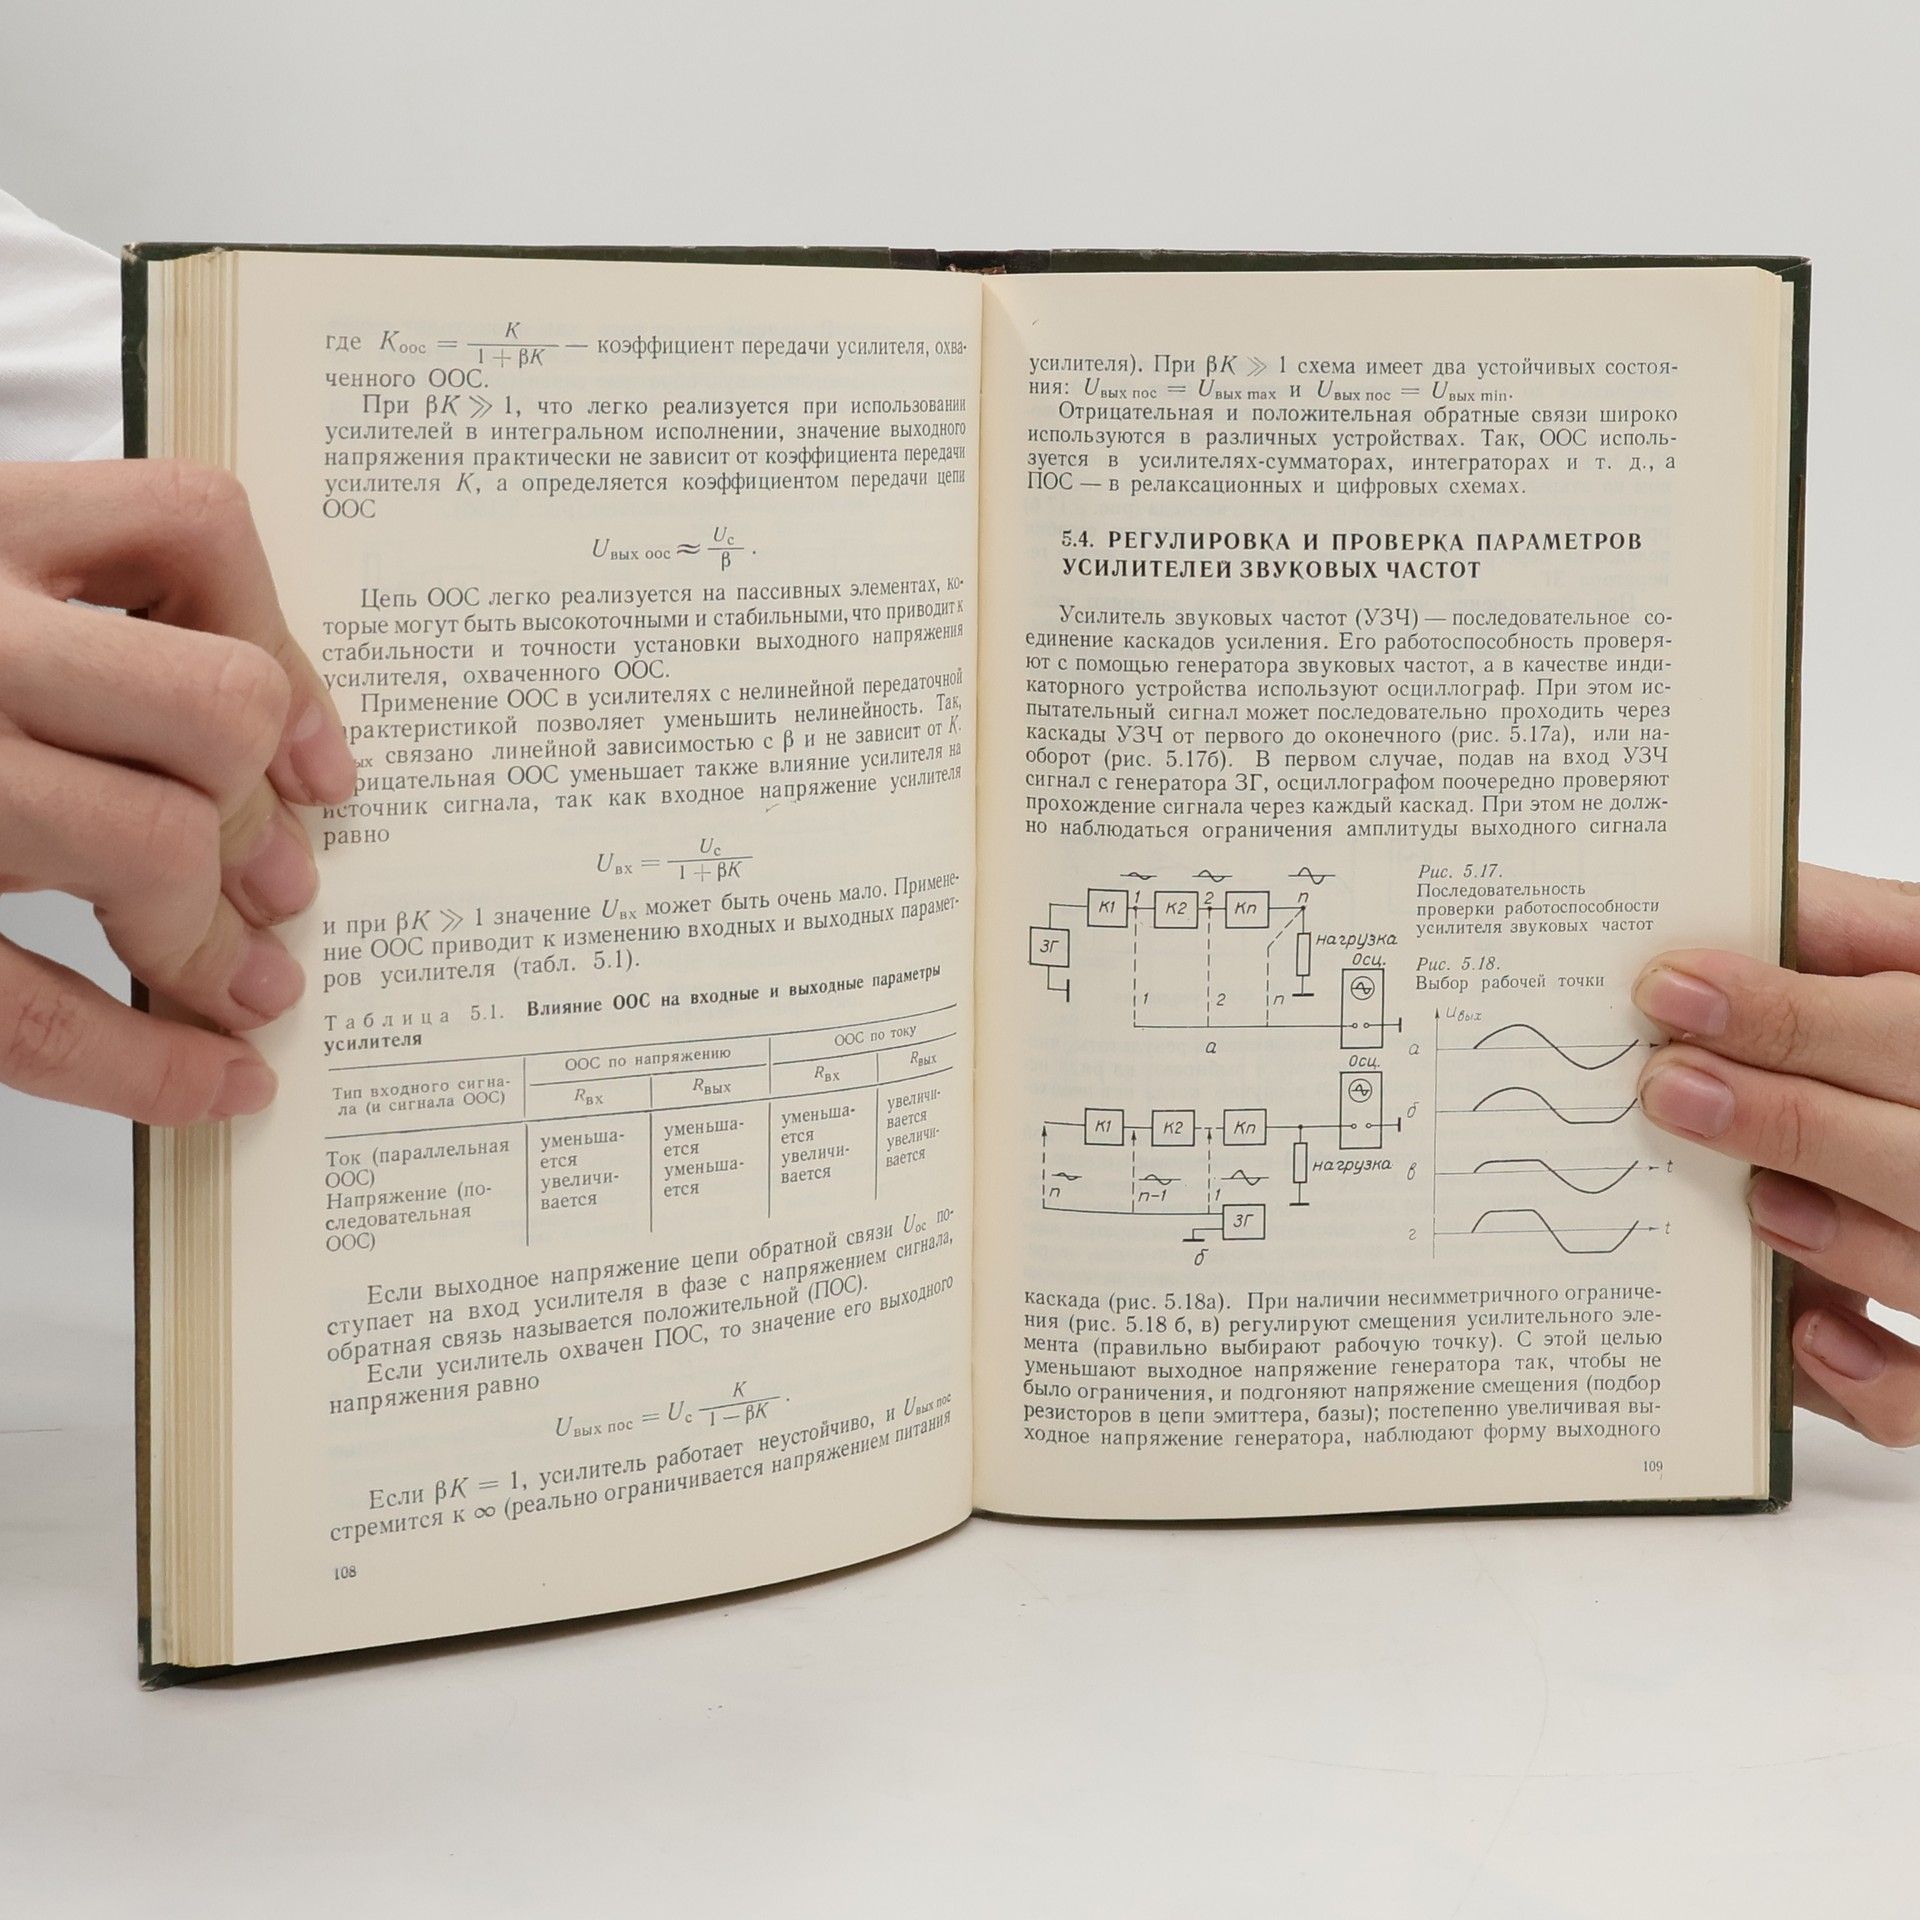 где Kоос = K / (1 + βK) — коэффициент передачи усилителя, охва-
ченного ООС.
При βK ≫ 1, что легко реализуется при использовании
усилителей в интегральном исполнении, значение выходного
напряжения практически не зависит от коэффициента передачи
усилителя K, а определяется коэффициентом передачи цепи
ООС
Uвых оос ≈ Uс / β .
Цепь ООС легко реализуется на пассивных элементах, ко-
торые могут быть высокоточными и стабильными, что приводит к
стабильности и точности установки выходного напряжения
усилителя, охваченного ООС.
Применение ООС в усилителях с нелинейной передаточной
рактеристикой позволяет уменьшить нелинейность. Так,
ых связано линейной зависимостью с β и не зависит от K.
рицательная ООС уменьшает также влияние усилителя на
источник сигнала, так как входное напряжение усилителя
равно
Uвх = Uс / (1 + βK)
и при βK ≫ 1 значение Uвх может быть очень мало. Примене-
ние ООС приводит к изменению входных и выходных парамет-
ров усилителя (табл. 5.1).
Таблица 5.1. Влияние ООС на входные и выходные параметры
усилителя
Тип входного сигна-
ла (и сигнала ООС)
ООС по напряжению
ООС по току
Rвх
Rвых
Rвх
Rвых
Ток (параллельная
ООС)
Напряжение (по-
следовательная
ООС)
уменьша-
ется
увеличи-
вается
уменьша-
ется
уменьша-
ется
уменьша-
ется
увеличи-
вается
увеличи-
вается
увеличи-
вается
Если выходное напряжение цепи обратной связи Uос по-
ступает на вход усилителя в фазе с напряжением сигнала,
обратная связь называется положительной (ПОС).
Если усилитель охвачен ПОС, то значение его выходного
напряжения равно
Uвых пос = Uс K / (1 — βK) .
Если βK = 1, усилитель работает неустойчиво, и Uвых пос
стремится к ∞ (реально ограничивается напряжением питания
108
усилителя). При βK ≫ 1 схема имеет два устойчивых состоя-
ния: Uвых пос = Uвых max и Uвых пос = Uвых min.
Отрицательная и положительная обратные связи широко
используются в различных устройствах. Так, ООС исполь-
зуется в усилителях-сумматорах, интеграторах и т. д., а
ПОС — в релаксационных и цифровых схемах.
5.4. РЕГУЛИРОВКА И ПРОВЕРКА ПАРАМЕТРОВ
УСИЛИТЕЛЕЙ ЗВУКОВЫХ ЧАСТОТ
Усилитель звуковых частот (УЗЧ) — последовательное со-
единение каскадов усиления. Его работоспособность проверя-
ют с помощью генератора звуковых частот, а в качестве инди-
каторного устройства используют осциллограф. При этом ис-
пытательный сигнал может последовательно проходить через
каскады УЗЧ от первого до оконечного (рис. 5.17а), или на-
оборот (рис. 5.17б). В первом случае, подав на вход УЗЧ
сигнал с генератора ЗГ, осциллографом поочередно проверяют
прохождение сигнала через каждый каскад. При этом не долж-
но наблюдаться ограничения амплитуды выходного сигнала
К1 1 К2 2 Кп п
ЗГ
нагрузка
Осц.
1 2 п
а
Осц.
К1 К2 Кп
нагрузка
п п-1 1
ЗГ
б
Рис. 5.17.
Последовательность
проверки работоспособности
усилителя звуковых частот
Рис. 5.18.
Выбор рабочей точки
Uвых
а
б
в t
г t
каскада (рис. 5.18а). При наличии несимметричного ограниче-
ния (рис. 5.18 б, в) регулируют смещения усилительного эле-
мента (правильно выбирают рабочую точку). С этой целью
уменьшают выходное напряжение генератора так, чтобы не
было ограничения, и подгоняют напряжение смещения (подбор
резисторов в цепи эмиттера, базы); постепенно увеличивая вы-
ходное напряжение генератора, наблюдают форму выходного
109